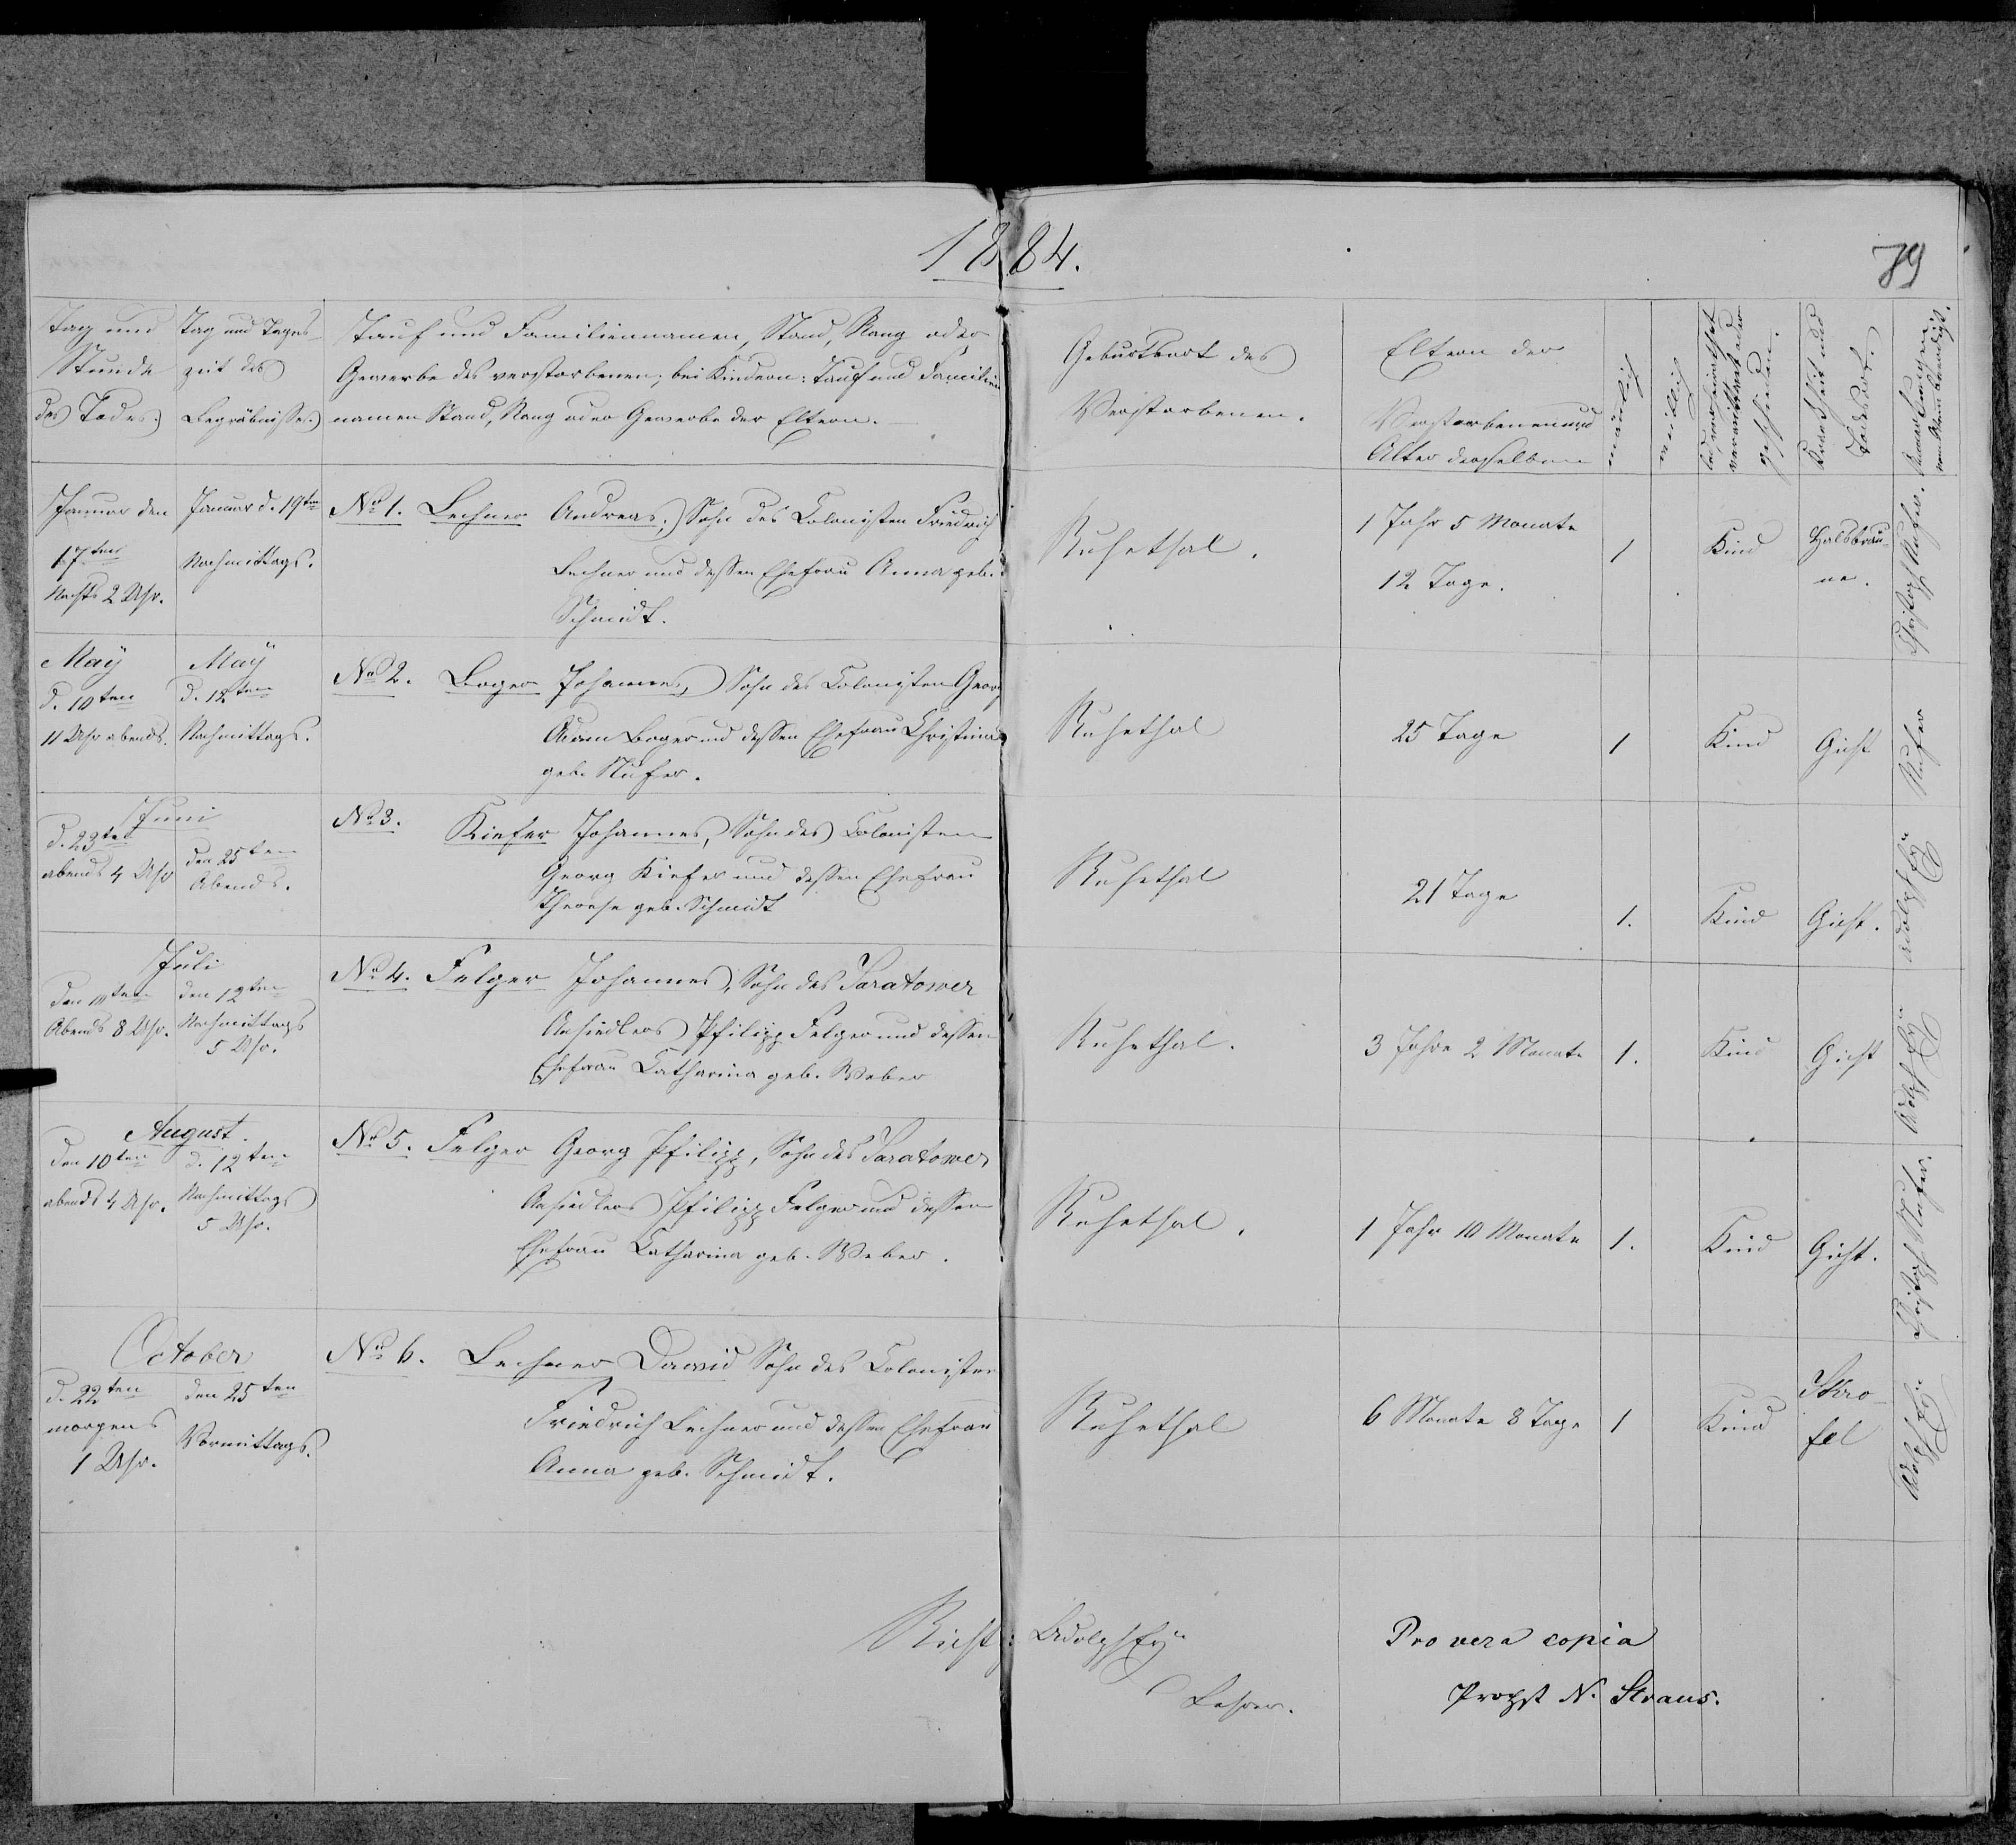 1884.
79
Tag und
Stunde
des Todes.
Tag und Tages-
zeit des
Begräbnisses.
Tauf und Familiennamen, Stand, Rang oder
Gewerbe des verstorbenen; bei Kindern: Tauf und Familien
namen Stand, Rang oder Gewerbe der Eltern.
Geburtsort des
Verstorbenen.
Eltern der
Verstorbenen und
Alter derselben
männlich
weiblich
led. verheirathet
verwittwet oder
geschieden.
Krankheit und
Todesart.
Bemerkungen
von wem beerdigt.
Januar den
17ten
Nachts 2 Uhr.
Januar d. 19ten
Nachmittags.
No 1. Lechner Andreas, Sohn des Colonisten Friedrich
Lechner und dessen Ehefrau Anna geb.
Schmidt.
Ruhethal.
1 Jahr 5 Monate
12 Tage.
1
Kind
Halsbräu-
ne.
Christoph Nufer.
May
d. 10ten
11 Uhr abends.
May
d. 12ten
Nachmittags.
No 2. Boger Johannes, Sohn des Colonisten Georg
Adam Boger und dessen Ehefrau Christina
geb. Nufer.
Ruhethal
25 Tage
1
Kind
Gicht
Nufer
Juni
d. 23ten
abends 4 Uhr
den 25ten
Abends.
No 3. Kiefer Johannes, Sohn des Colonisten
Georg Kiefer und dessen Ehefrau
Therese geb. Schmidt
Ruhethal
21 Tage
1.
Kind
Gicht.
Adolph
Juli
den 10ten
Abends 8 Uhr.
den 12ten
Nachmittags
5 Uhr.
No 4. Felger Johannes, Sohn des Saratower
Ansiedlers Philipp Felger und dessen
Ehefrau Catharina geb. Weber
Ruhethal.
3 Jahre 2 Monate
1.
Kind
Gicht
Adolph
August.
den 10ten
abends 4 Uhr.
d. 12ten
Nachmittags
5 Uhr.
No 5. Felger Georg Philipp, Sohn des Saratower
Ansiedlers Philipp Felger und dessen
Ehefrau Catharina geb. Weber.
Ruhethal.
1 Jahr 10 Monate
1.
Kind
Gicht.
Christoph Nufer.
October
d. 22ten
morgens
1 Uhr.
den 25ten
Vormittags.
No 6. Lechner Dawid Sohn des Colonisten
Friedrich Lechner und dessen Ehefrau
Anna geb. Schmidt.
Ruhethal
6 Monate 8 Tage
1
Kind
Skro-
fel
Adolph
Adolph
Lehrer.
Pro vera copia
Propst N. Straus.